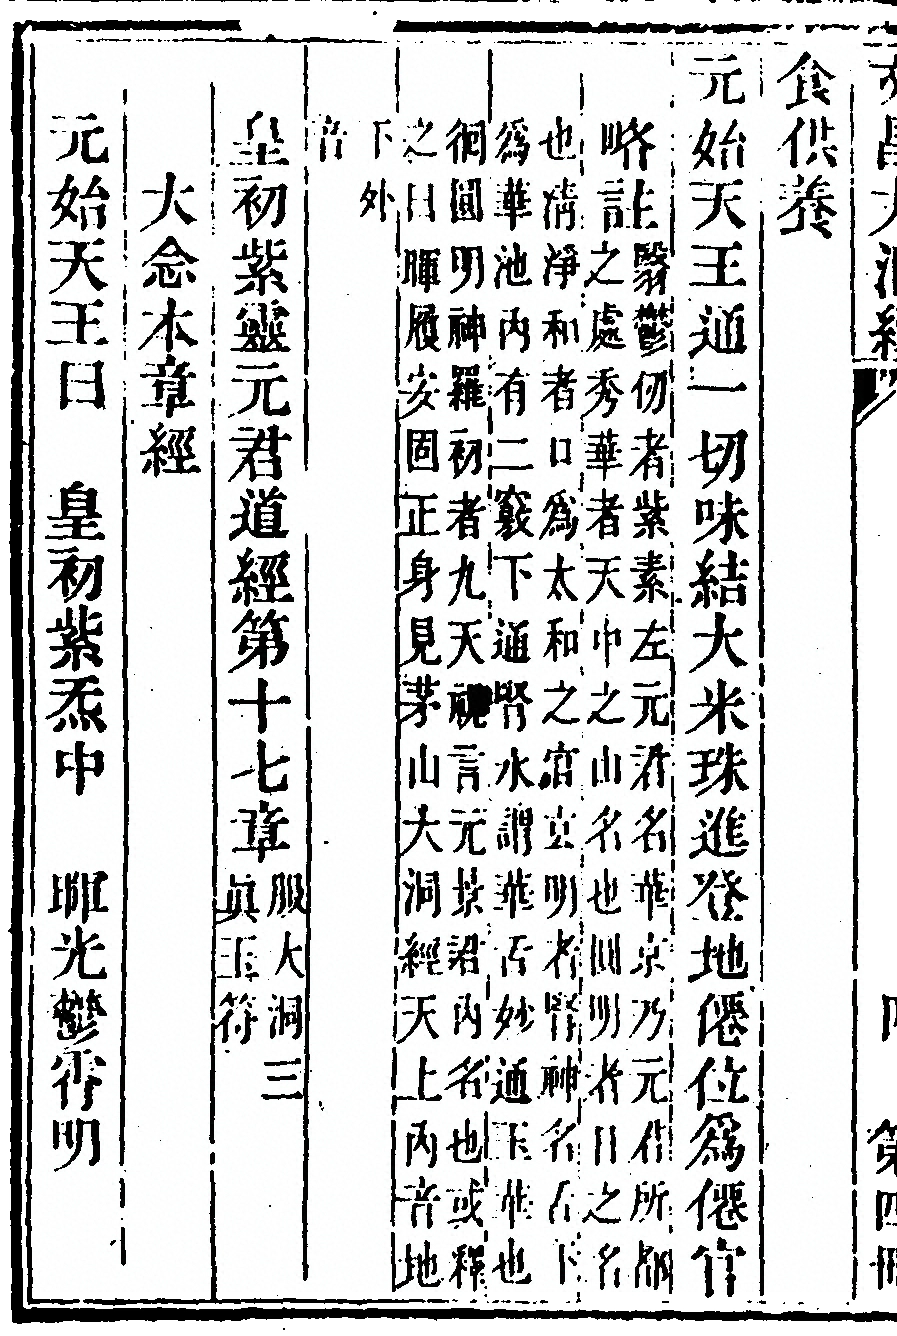 食供養
元始天王通一切味結大米珠進登地僊位爲僊官
略註翳鬱仞者紫素左元君名華京乃元君所都
之處秀華者天中之山名也圓明者日之名
也清淨和者口爲太和之宮玄明者腎神名舌下
爲華池內有二竅下通腎水謂華舌妙通玉華也
徊圓明神羅初者九天言元景君內名也或釋
之曰暉履安固正身見茅山大洞經天上內音地
下外
音
皇初紫靈元君道經第十七章服大洞三
眞玉符
大念本章經
元始天王曰　皇初紫炁中　暉光鬱霄明